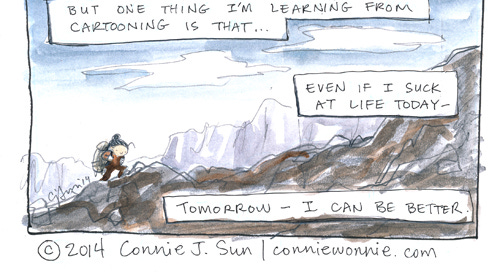 BUT ONE THING I'M LEARNING FROM
CARTOONING IS THAT...
EVEN IF I SUCK
AT LIFE TODAY—
TOMORROW — I CAN BE BETTER.
© 2014 Connie J. Sun | conniewonnie.com